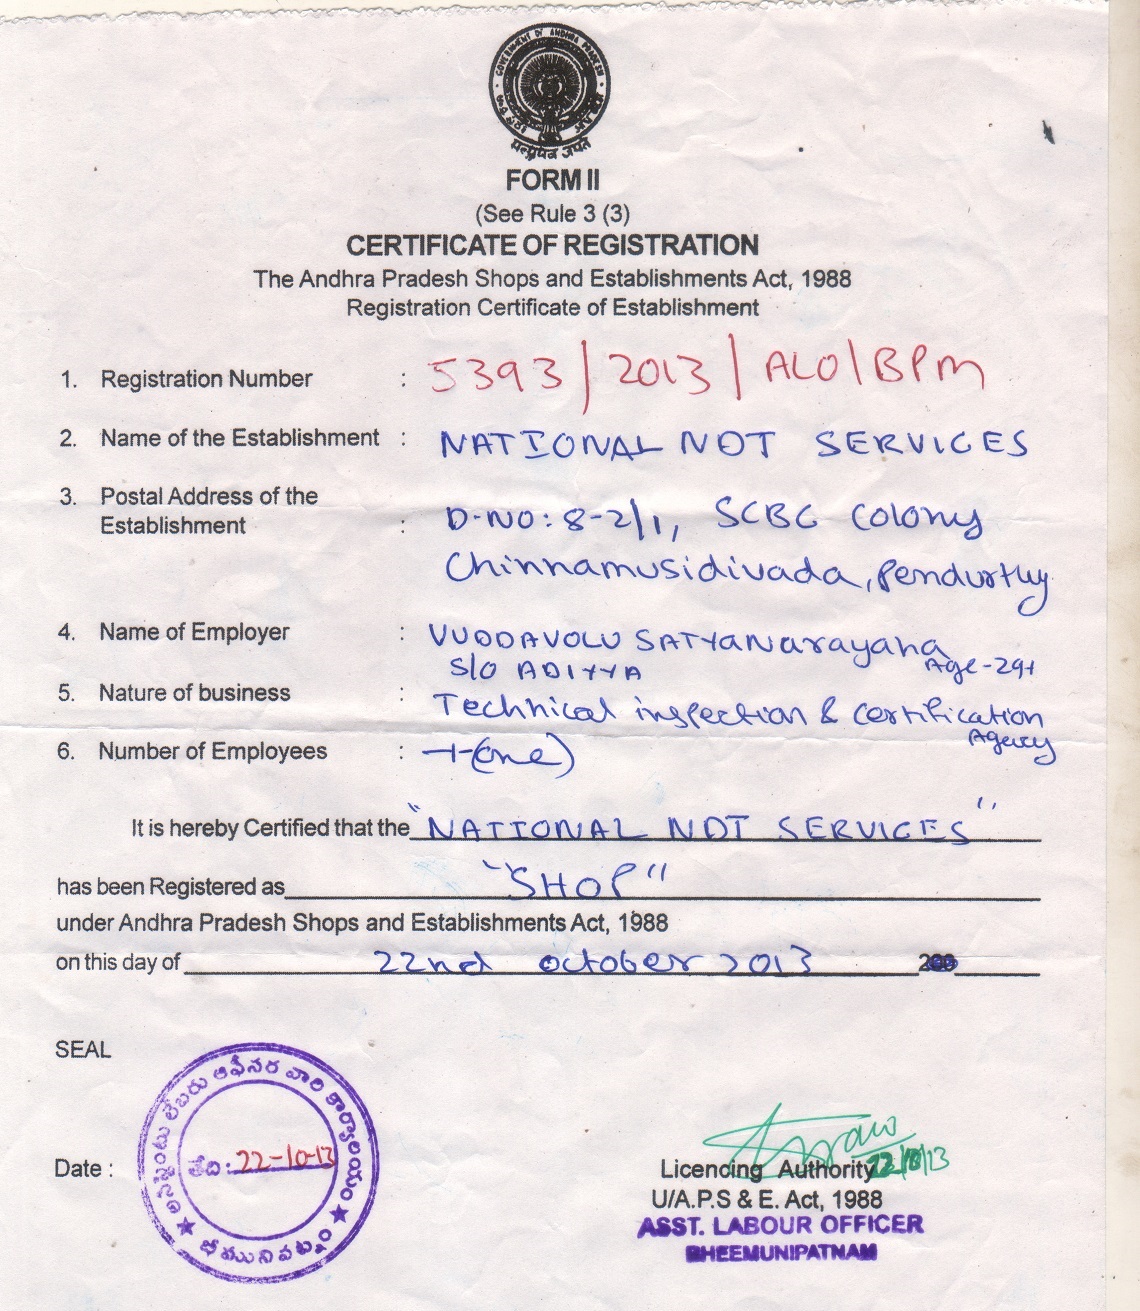 GOVERNMENT OF ANDHRA PRADESH
सत्यमेव जयते
FORM II
(See Rule 3 (3)
CERTIFICATE OF REGISTRATION
The Andhra Pradesh Shops and Establishments Act, 1988
Registration Certificate of Establishment
1. Registration Number : 5393/2013/ALO/BPM
2. Name of the Establishment : NATIONAL NDT SERVICES
3. Postal Address of the
Establishment : D-NO: 8-2/1, SCBC Colony
Chinnamusidivada, Pendurthy
4. Name of Employer : VUDDAVOLU SATYANarayana
S/O ADITYA Age-29+
5. Nature of business : Technical inspection & certification
Agency
6. Number of Employees : -1-(one)
It is hereby Certified that the "NATIONAL NDT SERVICES"
has been Registered as "SHOP"
under Andhra Pradesh Shops and Establishments Act, 1988
on this day of 22nd October 2013
SEAL
అసిస్టెంటు లేబరు ఆఫీసర వారి కార్యాలయం
తేది: 22-10-13
భీమునిపట్నం
Date :
Licencing Authority 22/10/13
U/A.P.S & E. Act, 1988
ASST. LABOUR OFFICER
BHEEMUNIPATNAM